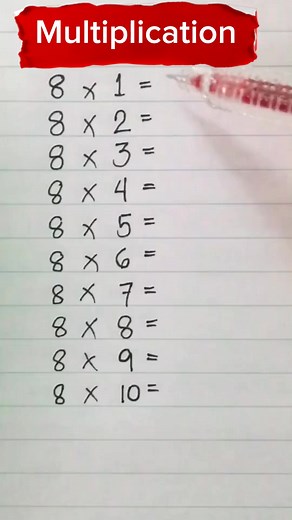 Multiplication
8 x 1 =
8 x 2 =
8 x 3 =
8 x 4 =
8 x 5 =
8 x 6 =
8 x 7 =
8 x 8 =
8 x 9 =
8 x 10 =